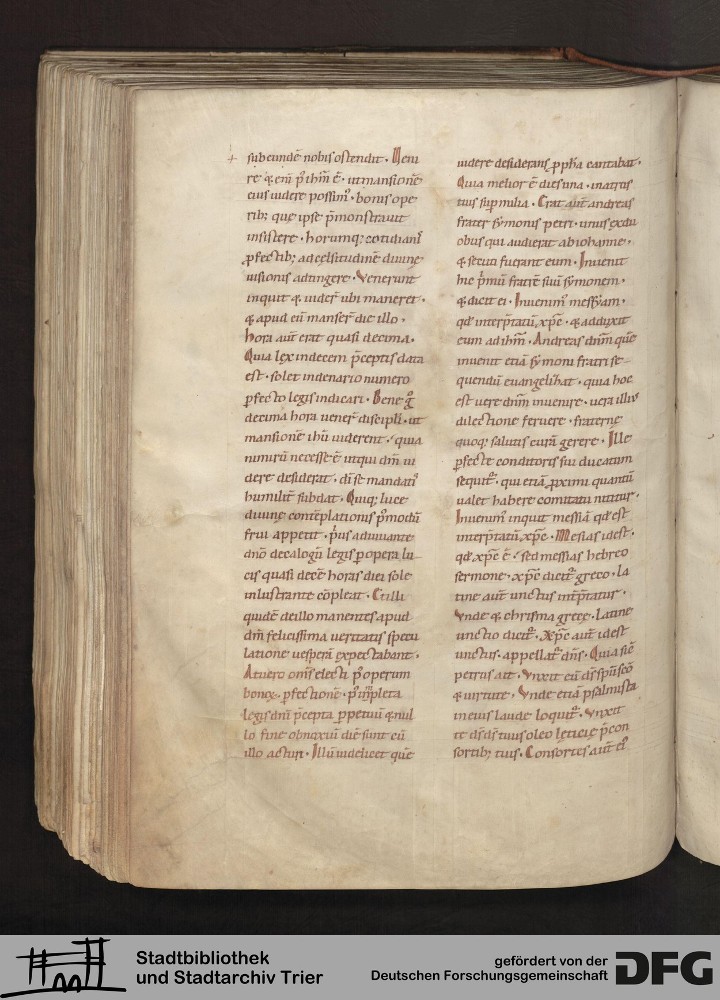 sub eundē nobis ostendit. Veni
re & eni p ihm ē. ut mansionē
eius uidere possim'. bonis ope
rib; que ipse p̄monstrauit
insistere. horumq; cotidianis
ꝓfectib; ad celsitudinē diuine
uisionis adtingere. Venerunt
inquit & uider̄ ubi maneret.
& apud eū manser̄ die illo.
hora aut̄ erat quasi decima.
Quia lex in decem p̄ceptis data
est. solet in denario numero
ꝑfecto legis indicari. Bene g̊
decima hora uener̄ discipli. ut
mansionē ihū uiderent. quia
nimirū necesse ē ut qui dm̄ ui
dere desiderat. di se mandatis
humilit̄ subdat. Quiq; luce
diuinę contēplationis p̄ modū
frui appetit. p'us adiuuante
dn̄o decalogū legis ꝑ opera lu
cis quasi decē horas diei sole
inlustrante cōpleat. Et illi
quidē de illo manentes apud
dm̄ felicissima ueritatis specu
latione uesperā expectabant.
At uero om̄s electi p' operum
bonoꝝ ꝑfectionē. p' impleta
legis dn̄i p̄cepta ꝑpetuū & nul
lo fine obnoxiū diē sunt cū
illo acturi. Illū uidelicet quē
uidere desiderans ꝓph̄a cantabat.
Quia melior ē dies una. in atriis
tuis sup milia. Erat aut̄ andreas
frater symonis petri. unus ex du
obus qui audierat ab iohanne.
& secuti fuerant eum. Inuenit
hic p̄mū fratrē suū symonem.
& dicit ei. Inuenim' messyam.
qd̄ interp̄tatū xp̄c. & adduxit
eum ad ihm̄. Andreas dn̄m quē
inuenit etiā symoni fratri se
quendū euangelizat. quia hoc
est uere dn̄m inuenire. uera illius
dilectione feruere. fraternę
quoq; salutis curā gerere. Ille
ꝑfecte conditoris sui ducatum
sequit̄. qui etiā ꝓximi quantū
ualet habere comitatū nititur.
Inuenim' inquit messiā qd̄ est
interp̄tatū xp̄c. Mesias id est.
qd̄ xp̄c ē. sed messias hebreo
sermone. xp̄c dicit̄ greco. la
tine aut̄ unctus int̄p̄tatur.
Vnde & chrisma grece. latine
unctio dicit̄. Xp̄c aut̄ id est
unctus. appellat̄ dn̄s. Quia sic̄
petrus ait. Vnxit eū ds̄ spū sc̄o
& uirtute. Vnde etiā psalmista
in eius laude loquit̄. Vnxit
te ds̄ ds̄ tuus oleo leticię p̄ con
sortib; tuis. Consortes aut̄ ei'
Stadtbibliothek
und Stadtarchiv Trier
gefördert von der
Deutschen Forschungsgemeinschaft
DFG